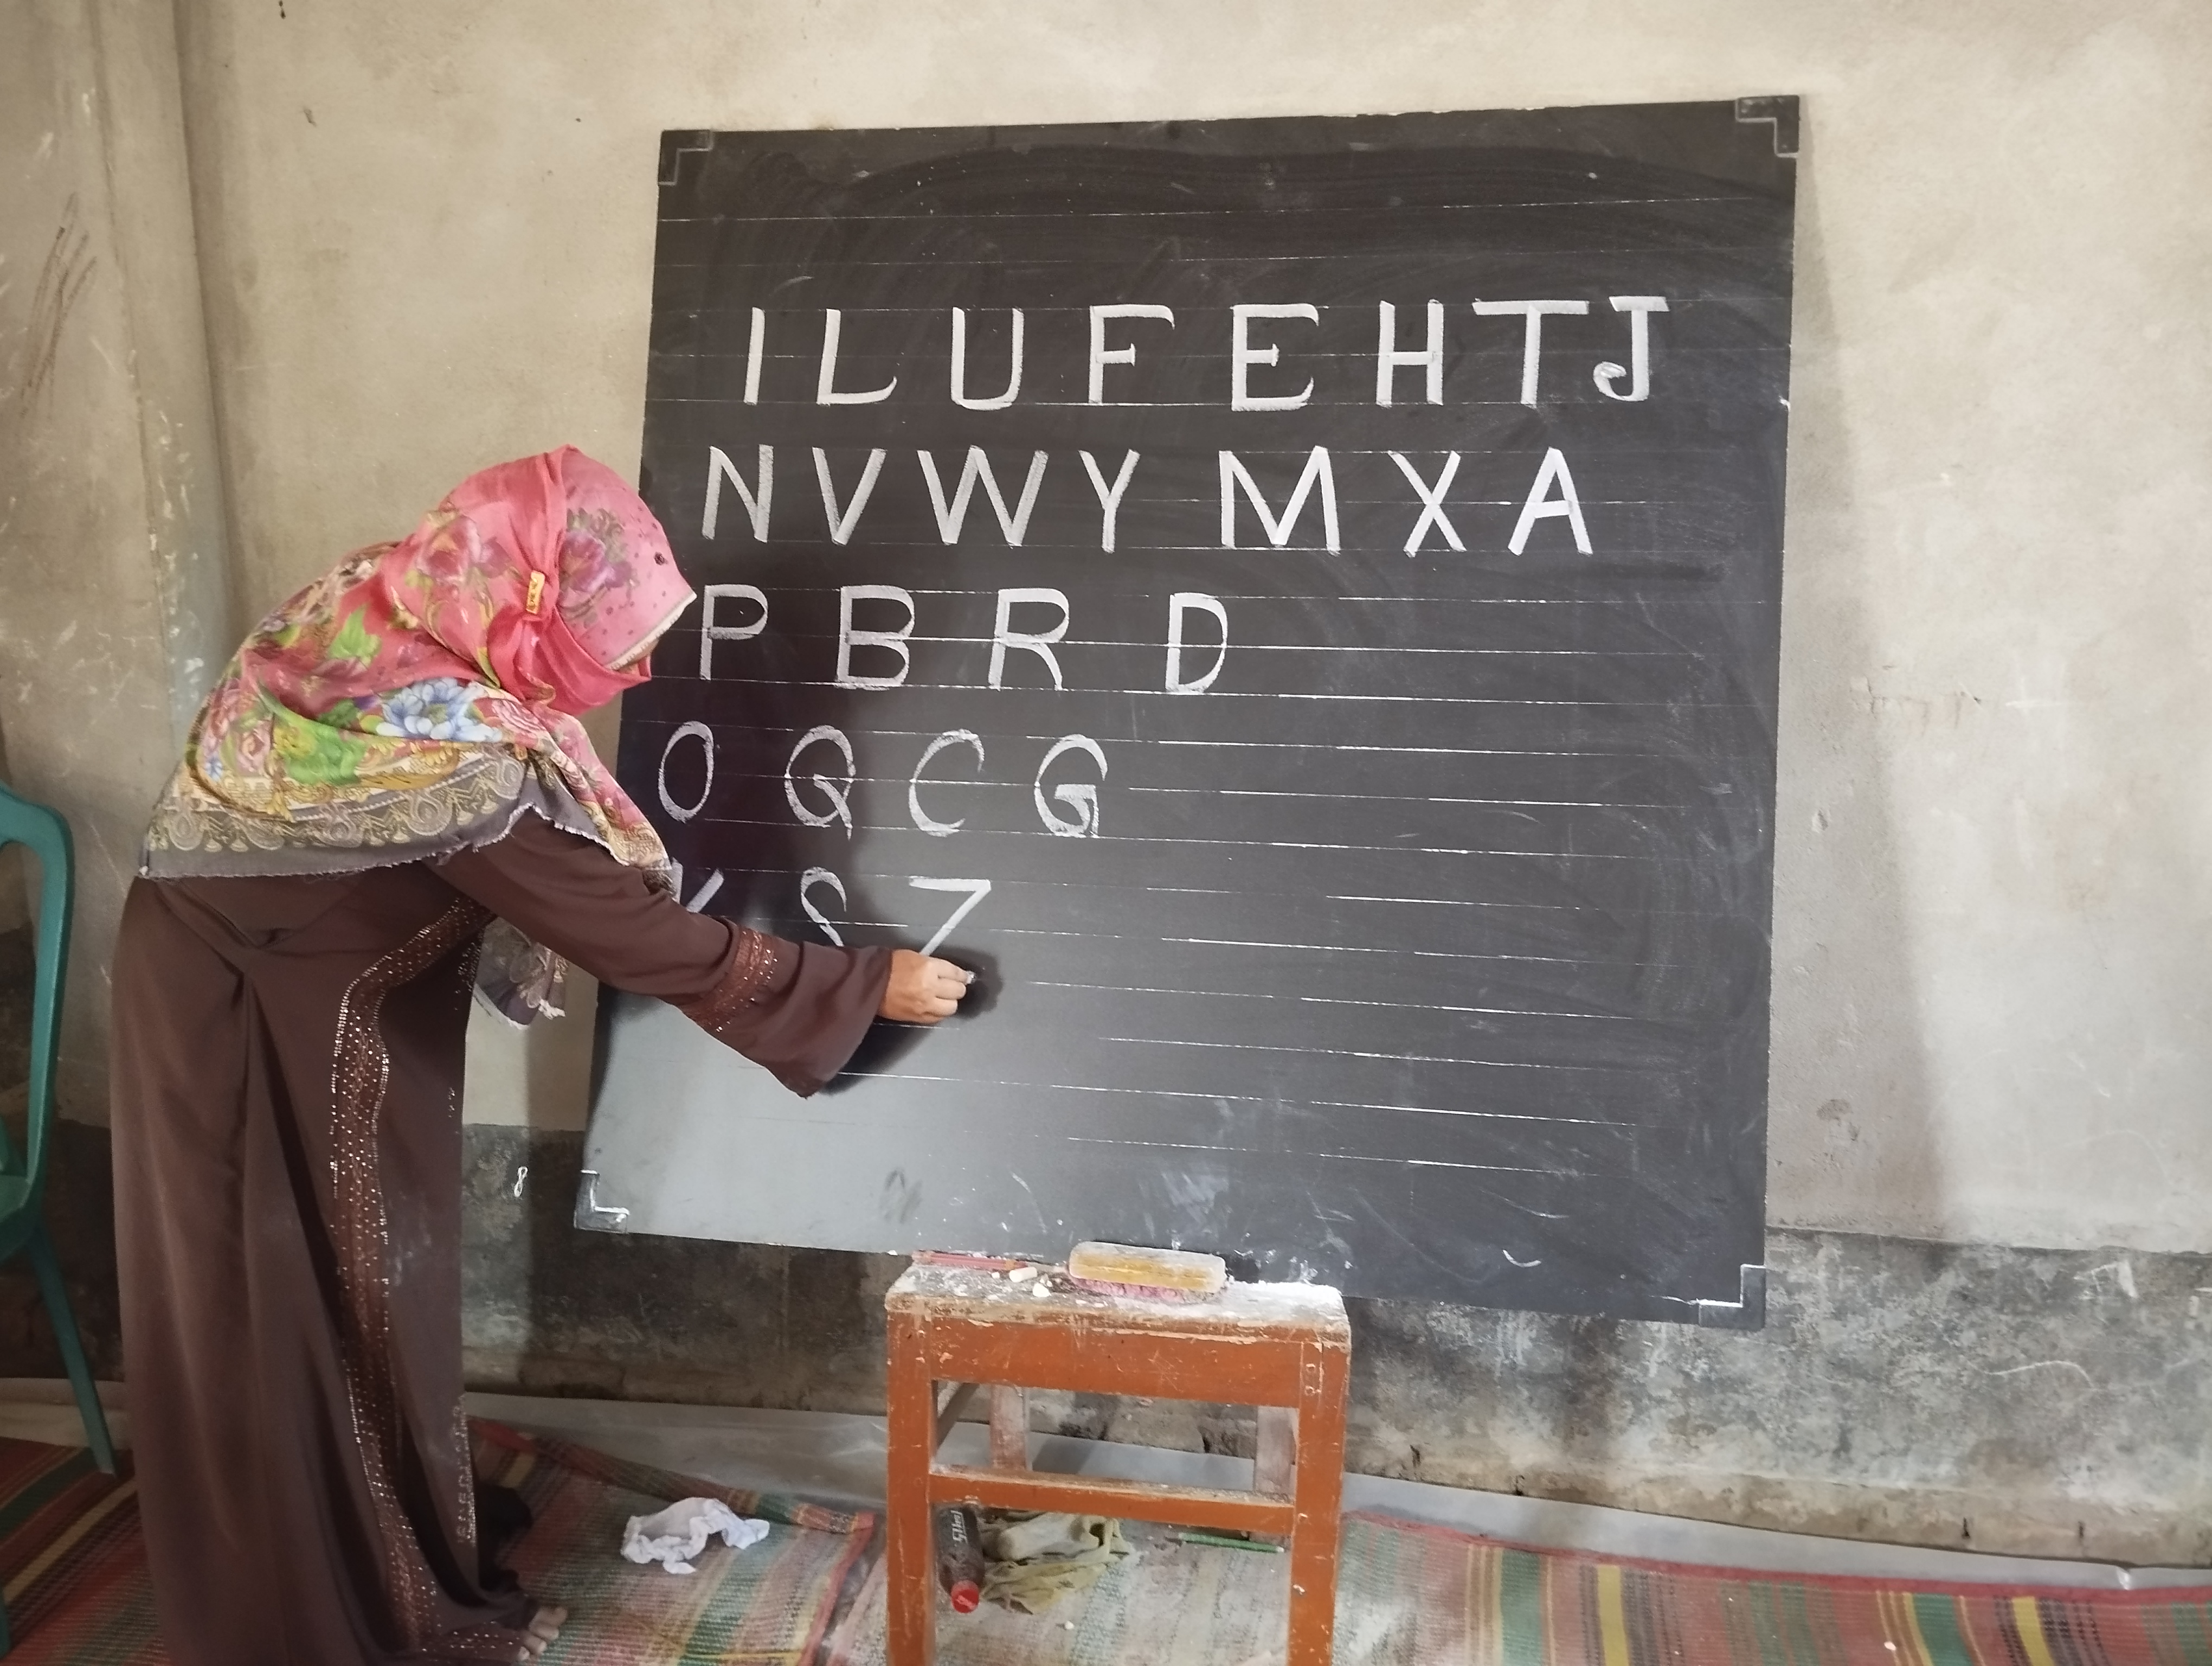 I L U F E H T J
N V W Y M X A
P B R D
O Q C G
S Z